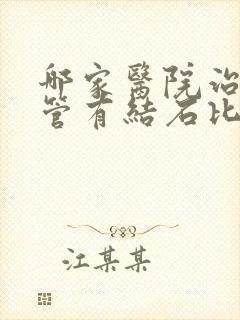 那家醫院治
管有結石比
江某某